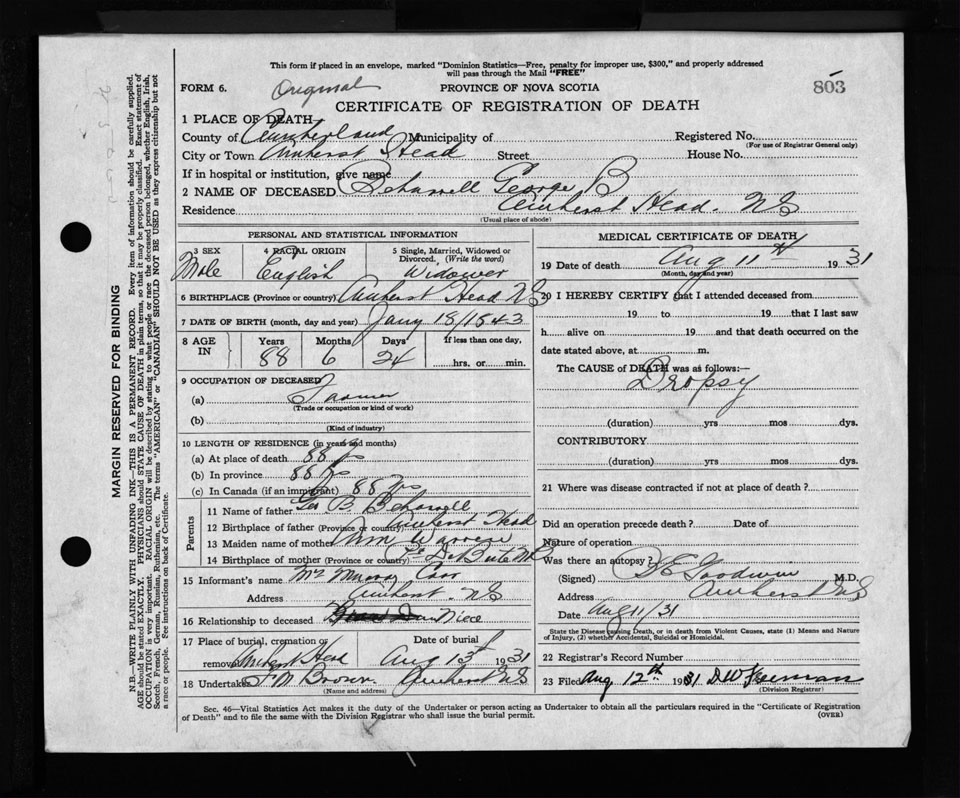 This form if placed in an envelope, marked "Dominion Statistics—Free, penalty for improper use, $300," and properly addressed
will pass through the Mail "FREE"
FORM 6. Original PROVINCE OF NOVA SCOTIA 803
CERTIFICATE OF REGISTRATION OF DEATH
1 PLACE OF DEATH
County of Cumberland Municipality of Registered No.
(For use of Registrar General only)
City or Town Amherst Head Street House No.
If in hospital or institution, give name
2 NAME OF DECEASED George B
Residence Amherst Head. NS
(Usual place of abode)
PERSONAL AND STATISTICAL INFORMATION
3 SEX 4 RACIAL ORIGIN 5 Single, Married, Widowed or
Divorced. (Write the word)
Male English Widower
6 BIRTHPLACE (Province or country) Amherst Head NS
7 DATE OF BIRTH (month, day and year) Jany 18/1843
8 AGE IN Years Months Days If less than one day,
88 6 24 hrs. or min.
9 OCCUPATION OF DECEASED
(a) Farmer
(Trade or occupation or kind of work)
(b)
(Kind of industry)
10 LENGTH OF RESIDENCE (in years and months)
(a) At place of death 88 yrs
(b) In province 88 yrs
(c) In Canada (if an immigrant) 88 yrs
Parents
11 Name of father Geo B
12 Birthplace of father (Province or country) Amherst Head
13 Maiden name of mother Warren
14 Birthplace of mother (Province or country) NB
15 Informant's name Mrs Murray
Address Amherst. NS
16 Relationship to deceased Niece
17 Place of burial, cremation or Date of burial
removal Amherst Head Aug 13th 1931
18 Undertaker Brown. Amherst NS
(Name and address)
MEDICAL CERTIFICATE OF DEATH
19 Date of death Aug 11th 1931
(Month, day and year)
20 I HEREBY CERTIFY that I attended deceased from
19 to 19 that I last saw
h alive on 19 and that death occurred on the
date stated above, at m.
The CAUSE of DEATH was as follows:—
Dropsy
(duration) yrs mos dys.
CONTRIBUTORY
(duration) yrs mos dys.
21 Where was disease contracted if not at place of death?
Did an operation precede death? Date of
Nature of operation
Was there an autopsy?
(Signed) Goodwin M.D.
Address Amherst NS
Date Aug 11/31
State the Disease causing Death, or in death from Violent Causes, state (1) Means and Nature
of Injury, (2) whether Accidental, Suicidal or Homicidal.
22 Registrar's Record Number
23 Filed Aug 12th 1931 DW Freeman
(Division Registrar)
Sec. 46—Vital Statistics Act makes it the duty of the Undertaker or person acting as Undertaker to obtain all the particulars required in the "Certificate of Registration
of Death" and to file the same with the Division Registrar who shall issue the burial permit. (OVER)
MARGIN RESERVED FOR BINDING
N.B.—WRITE PLAINLY WITH UNFADING INK—THIS IS A PERMANENT RECORD. Every item of information should be carefully supplied.
AGE should be stated EXACTLY. PHYSICIANS should STATE CAUSE OF DEATH in plain terms, so that it may be properly classified. Exact statement of
OCCUPATION is very important. RACIAL ORIGIN will be described by stating to what people or race the deceased person belonged, whether English, Irish,
Scotch, French, German, Russian, Ruthenian, etc. The terms "AMERICAN" or "CANADIAN" SHOULD NOT BE USED as they express citizenship but not
a race or people. See instructions on back of Certificate.